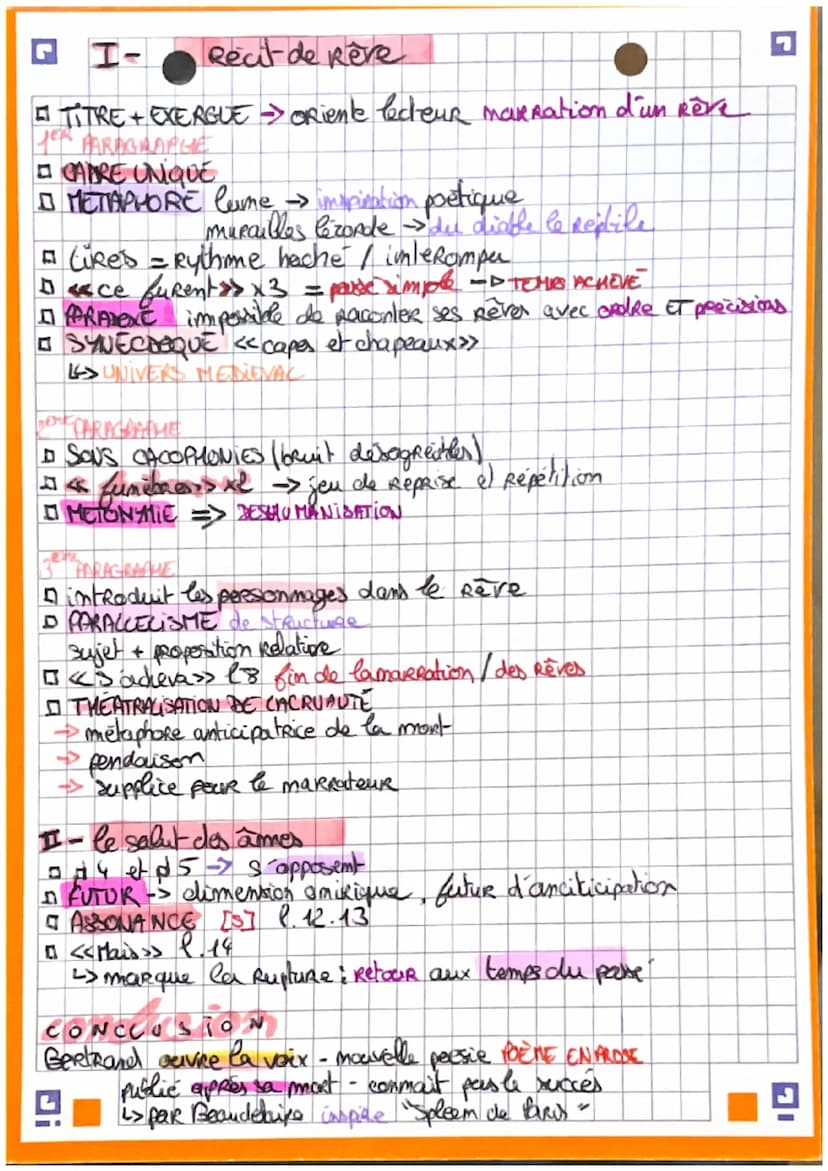 I - Récit de Rêve
TITRE + EXERGUE -> oriente lecteur narration d'un Rêve
1ER PARAGRAPHE
CADRE UNIQUE
METAPHORE lune -> inspiration poétique
murailles lézarde -> du diable le reptile
tirets = Rythme haché / interrompu
<<ce furent>> x3 = passé simple -> TEMPS ACHEVÉ
PARADOXE impossible de raconter ses rêves avec ORDRE ET précisions
SYNECDOQUE <<capes et chapeaux>>
↳> UNIVERS MEDIEVAL
2ème PARAGRAPHE
SONS CACOPHONIES (bruit désagréables)
<<funèbres>> x2 -> jeu de Reprise et Répétition
METONYMIE => DESHUMANISATION
3ème PARAGRAPHE
introduit les personnages dans le Rêve
PARALLELISME de structure
sujet + proposition Relative
<<s'acheva>> l8 fin de la narration / des Rêves
THÉATRALISATION DE LACRUAUTÉ
-> métaphore anticipatrice de la mort
-> pendaison
-> supplice pour le narrateur
II - le salut des âmes
4 et 5 -> s'opposent
FUTUR -> dimension onirique, futur d'anciticipation
ASSONANCE [S] l.12.13
<<Mais>> l.14
↳ marque la Rupture : RETOUR aux temps du passé
CONCLUSION
Bertrand ouvre la voix - nouvelle poésie POÈME EN PROSE
public après sa mort - connait pas le succès
↳ par Beaudelaire inspire "Spleen de Paris"